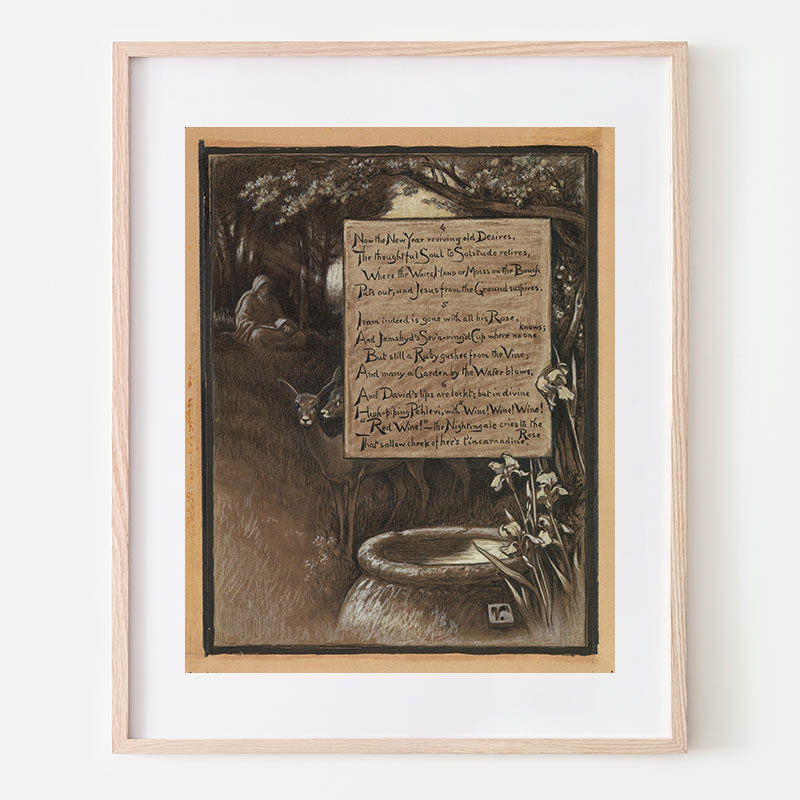 4
Now the New Year reviving old Desires,
The thoughtful Soul to Solitude retires,
Where the WHITE HAND OF MOSES on the Bough
Puts out, and Jesus from the Ground suspires.
5
Iram indeed is gone with all his Rose,
And Jamshyd's Sev'n-ring'd Cup where no one knows;
But still a Ruby gushes from the Vine,
And many a Garden by the Water blows.
6
And David's lips are lockt; but in divine
High-piping Pehlevi, with "Wine! Wine! Wine!
"Red Wine!"—the Nightingale cries to the Rose
That sallow cheek of her's t'incarnadine.